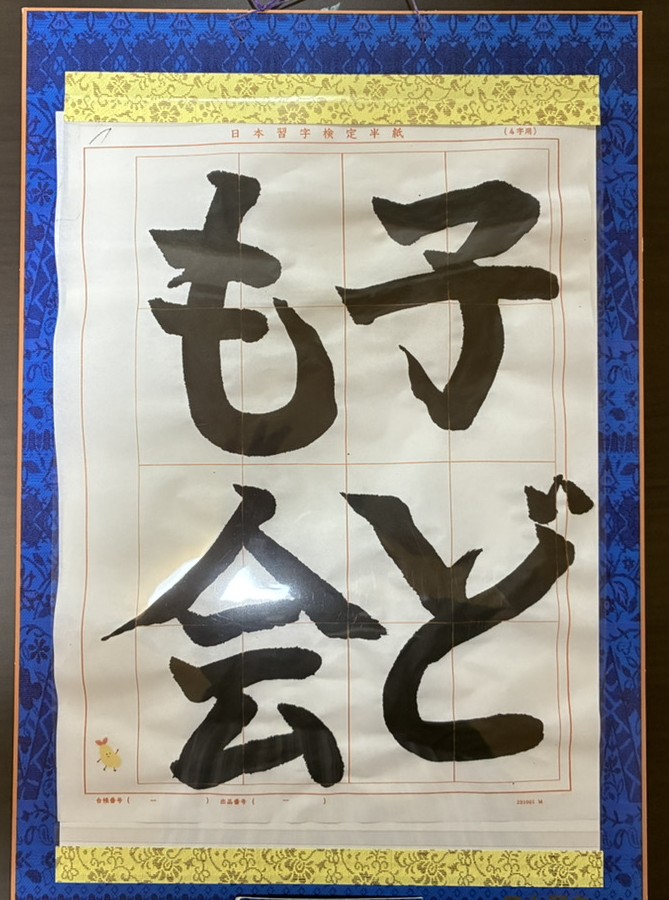 日本習字検定半紙
(4字用)
子ども会
台帳番号( ー ) 出品番号( ー )